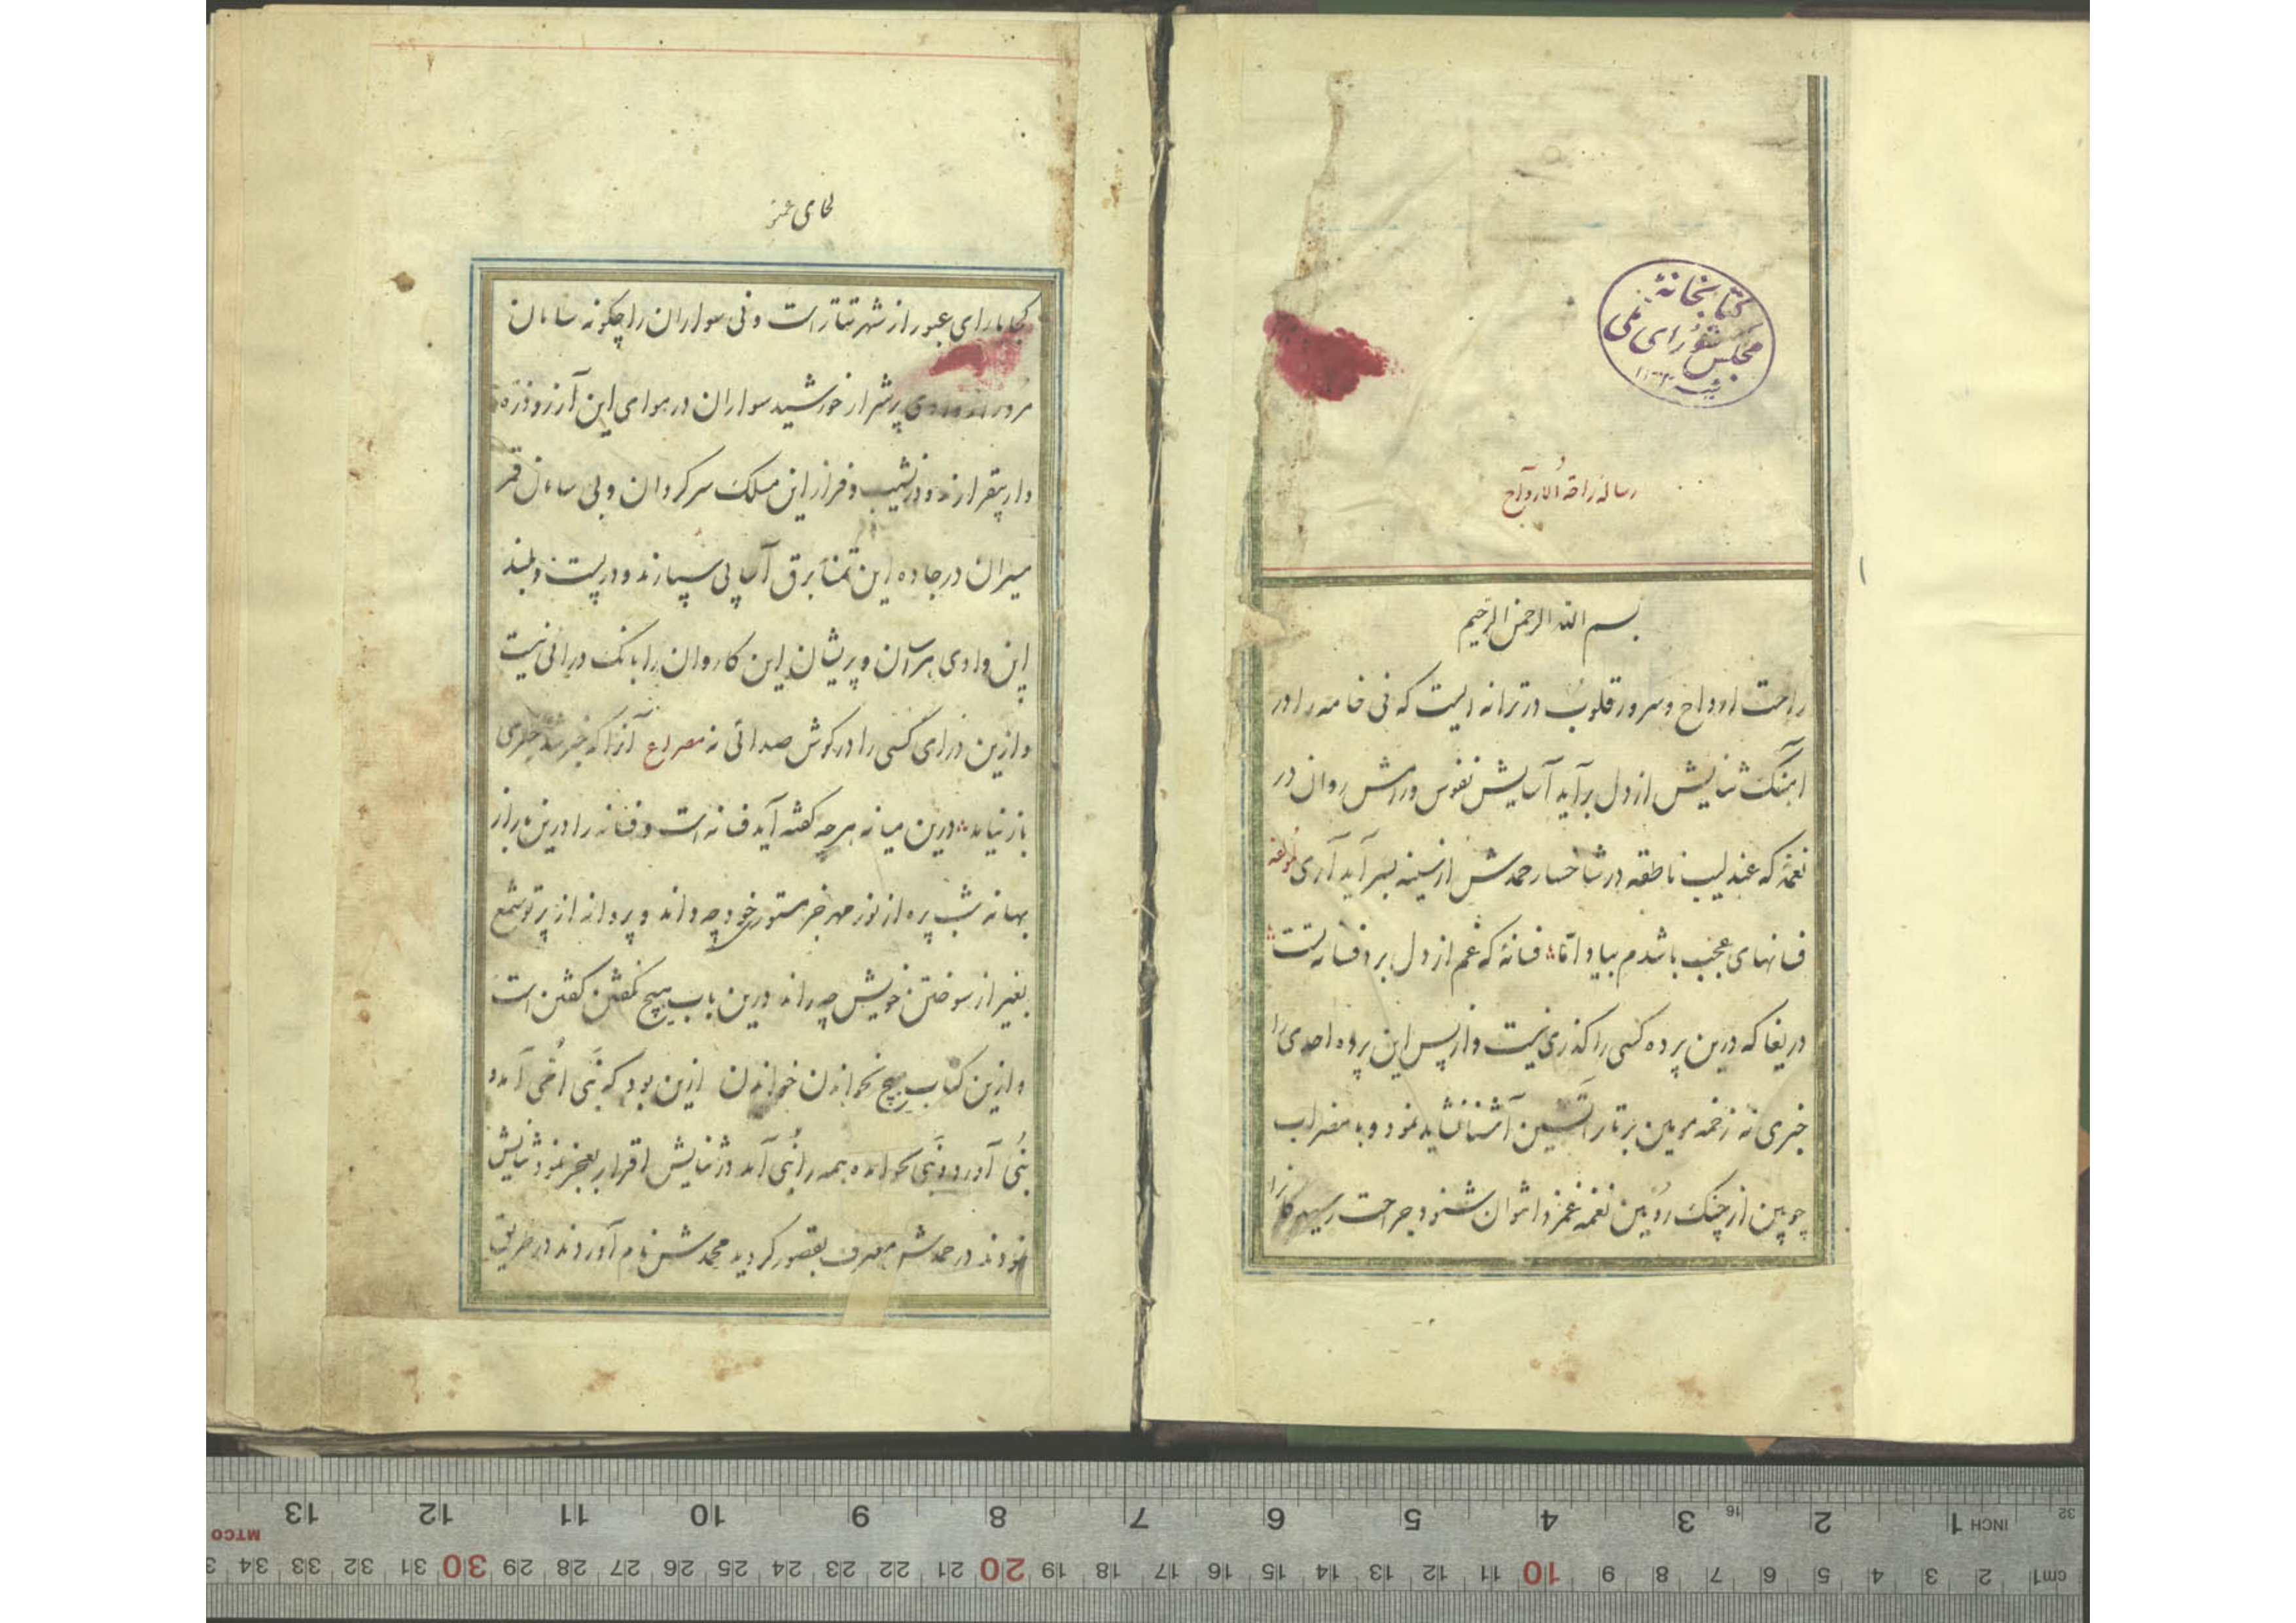 کتابخانهٔ
مجلس شورای ملی
رساله راحة الارواح
بسم الله الرحمن الرحیم
راحت ارواح و سرور قلوب در ترانه ایست که نی خامه را در
آهنگ ثنایش از دل برآید آسایش نفوس و رامش روان در
نغمهٔ که عندلیب ناطقه در شاخسار حمدش از سینه بسر آید آری لمولفه
فسانهای عجب باشدم بیاد اما فسانهٔ که غم از دل برد فسانه تست
دریغا که درین پرده کسی را گذری نیست و از پس این پرده احدی را
خبری نه زخمه مومین بر تار آتشین آشنا نشاید نمود و با مضراب
چوبین از چنک روئین نغمه نغز نتوان شنود جراحت رسیدگانرا
کجا یارای عبور از شهر تتار است و نی سواران را چگونه سامان
مرور از وادی پرشرار خورشید سواران در هوای این آرزو ذره
وار بیقرارند و در نشیب و فراز این مسلک سرکردان و بی سامان قمر
مسیران در جاده این تمنا برق آسا پی سپارند و در پست و بلند
این وادی هراسان و پریشان این کاروان را بانک درائی نیست
و ازین درای کسی را در کوش صدائی نه مصراع آنرا که خبر شد خبری
باز نیامد درین میانه هر چه گفته آید فسانه است و فسانه را درین راز
بهانه شب پره از نور مهر جز مستوری خود چه داند و پروانه از پرتو شمع
بغیر از سوختن خویش چه راند درین باب هیچ نگفتن گفتن است
و ازین کتاب هیچ نخواندن خواندن ازین بود که نبی امی آمد و
نبی آورد و نبی نخوانده همه را نبی آمد در ثنایش اقرار بعجز نمود ثنایش
نمودند در حمدش معترف بقصور کردید محمدش نام آوردند در طریق